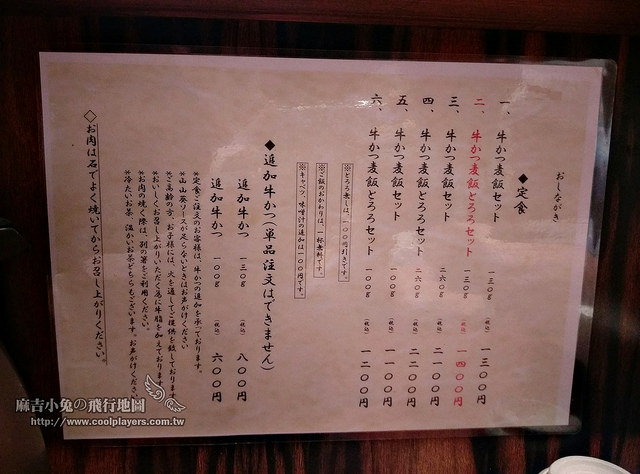 おしながき
◆定食
一、牛かつ麦飯セット 一三〇g (税込) 一三〇〇円
二、牛かつ麦飯とろろセット 一三〇g (税込) 一四〇〇円
三、牛かつ麦飯セット 二六〇g (税込) 二一〇〇円
四、牛かつ麦飯とろろセット 二六〇g (税込) 二二〇〇円
五、牛かつ麦飯セット 一〇〇g (税込) 一一〇〇円
六、牛かつ麦飯とろろセット 一〇〇g (税込) 一二〇〇円
※とろろ無しは、一〇〇円引きです。
※ご飯のおかわりは、一杯無料です。
※キャベツ、味噌汁の追加は一〇〇円です。
◆追加牛かつ(単品注文はできません)
追加牛かつ 一三〇g (税込) 八〇〇円
追加牛かつ 一〇〇g (税込) 六〇〇円
*定食ご注文のお客様は、牛かつの追加を承っております。
*山山葵ソースが足らないときはお声がけください
*ご高齢の方、お子様には、火を通してご提供を致しております
*おいしくお召し上がりいただく為に牛脂を加えております
*お肉の焼く際は、別の箸をご利用ください。
*冷たいお茶、温かいお茶どちらもございます。お声がけください
◇お肉は石でよく焼いてからお召し上がりください。
麻吉小兔の飛行地圖
http://www.coolplayers.com.tw